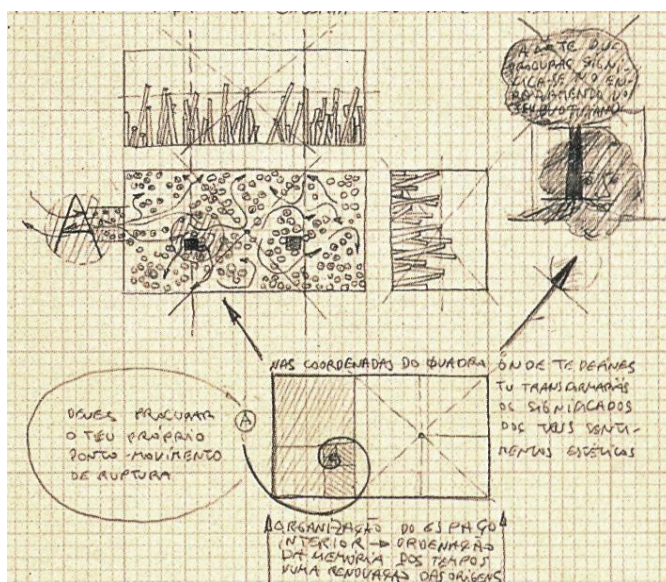 A ARTE QUE
PROCURAS SIGNI-
FICA-SE NO EN-
TEU QUOTIDIANO
A
NAS COORDENADAS DO QUADRA
ÓNDE TE DEFINES
TU TRANSFORMARÁS
OS SIGNIFICADOS
DOS TEUS SENTI-
MENTOS ESTÉTICOS
DEVES PROCURAR
O TEU PRÓPRIO
PONTO-MOVIMENTO
DE RUPTURA
A
ORGANIZAÇÃO DO ESPAÇO
INTERIOR → ORDENAÇÃO
DA MEMÓRIA DOS TEMPOS
NUMA RENOVAÇÃO DAS ORIGENS